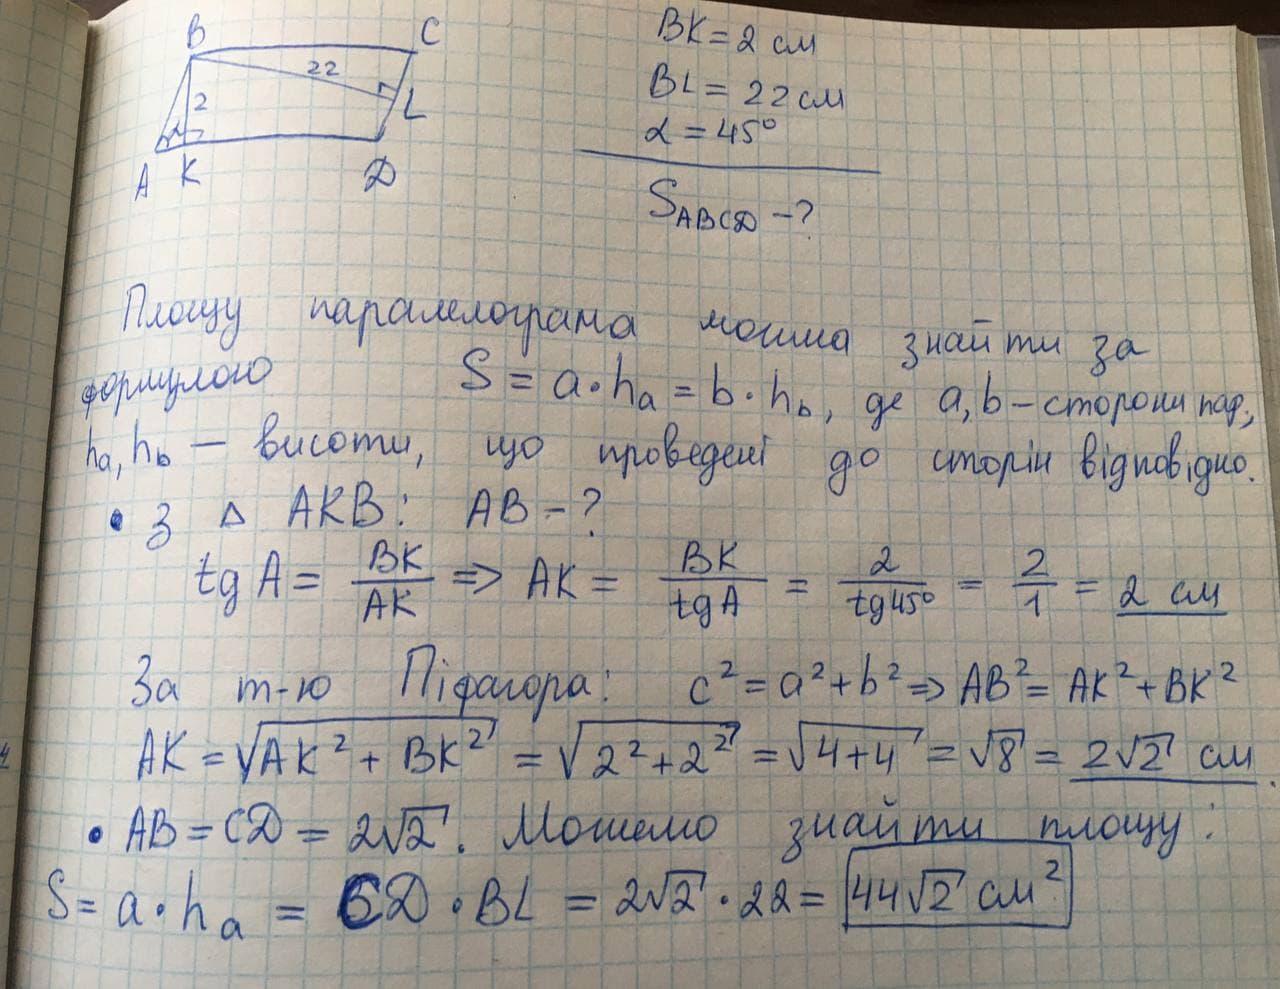 B C
22
2
L
A K D
BK = 2 см
BL = 22 см
α = 45°
S ABCD - ?
Площу паралелограма можна знайти за
формулою S = a · hₐ = b · h_b, де a, b – сторони пар,
hₐ, h_b — висоти, що проведені до сторін відповідно.
• З Δ AKB: AB - ?
tg A = BK/AK => AK = BK/tg A = 2/tg 45° = 2/1 = 2 см
За т-ю Піфагора: c² = a² + b² => AB² = AK² + BK²
AK = √(AK² + BK²) = √(2² + 2²) = √(4+4) = √8 = 2√2 см.
• AB = CD = 2√2. Можемо знайти площу:
S = a · hₐ = CD · BL = 2√2 · 22 = 44√2 см²